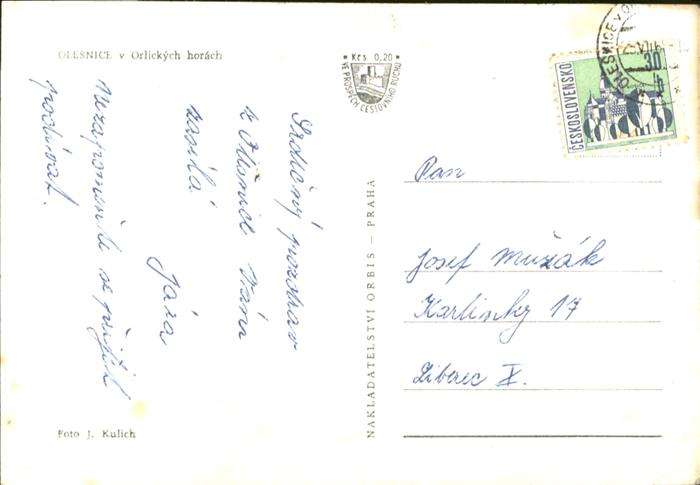 OLEŠNICE v Orlických horách
Kčs 0,20
VE PROSPĚCH CESTOVNÍHO RUCHU
OLEŠNICE v O
ČESKOSLOVENSKO
30 h
Srdečný pozdrav
z Olešnice Vám
zasílá
Jára
Nezapomeňte se přijít
podívat.
NAKLADATELSTVÍ ORBIS — PRAHA
Pan
Josef Mužák
Karlinky 17
Liberec X.
Foto J. Kulich